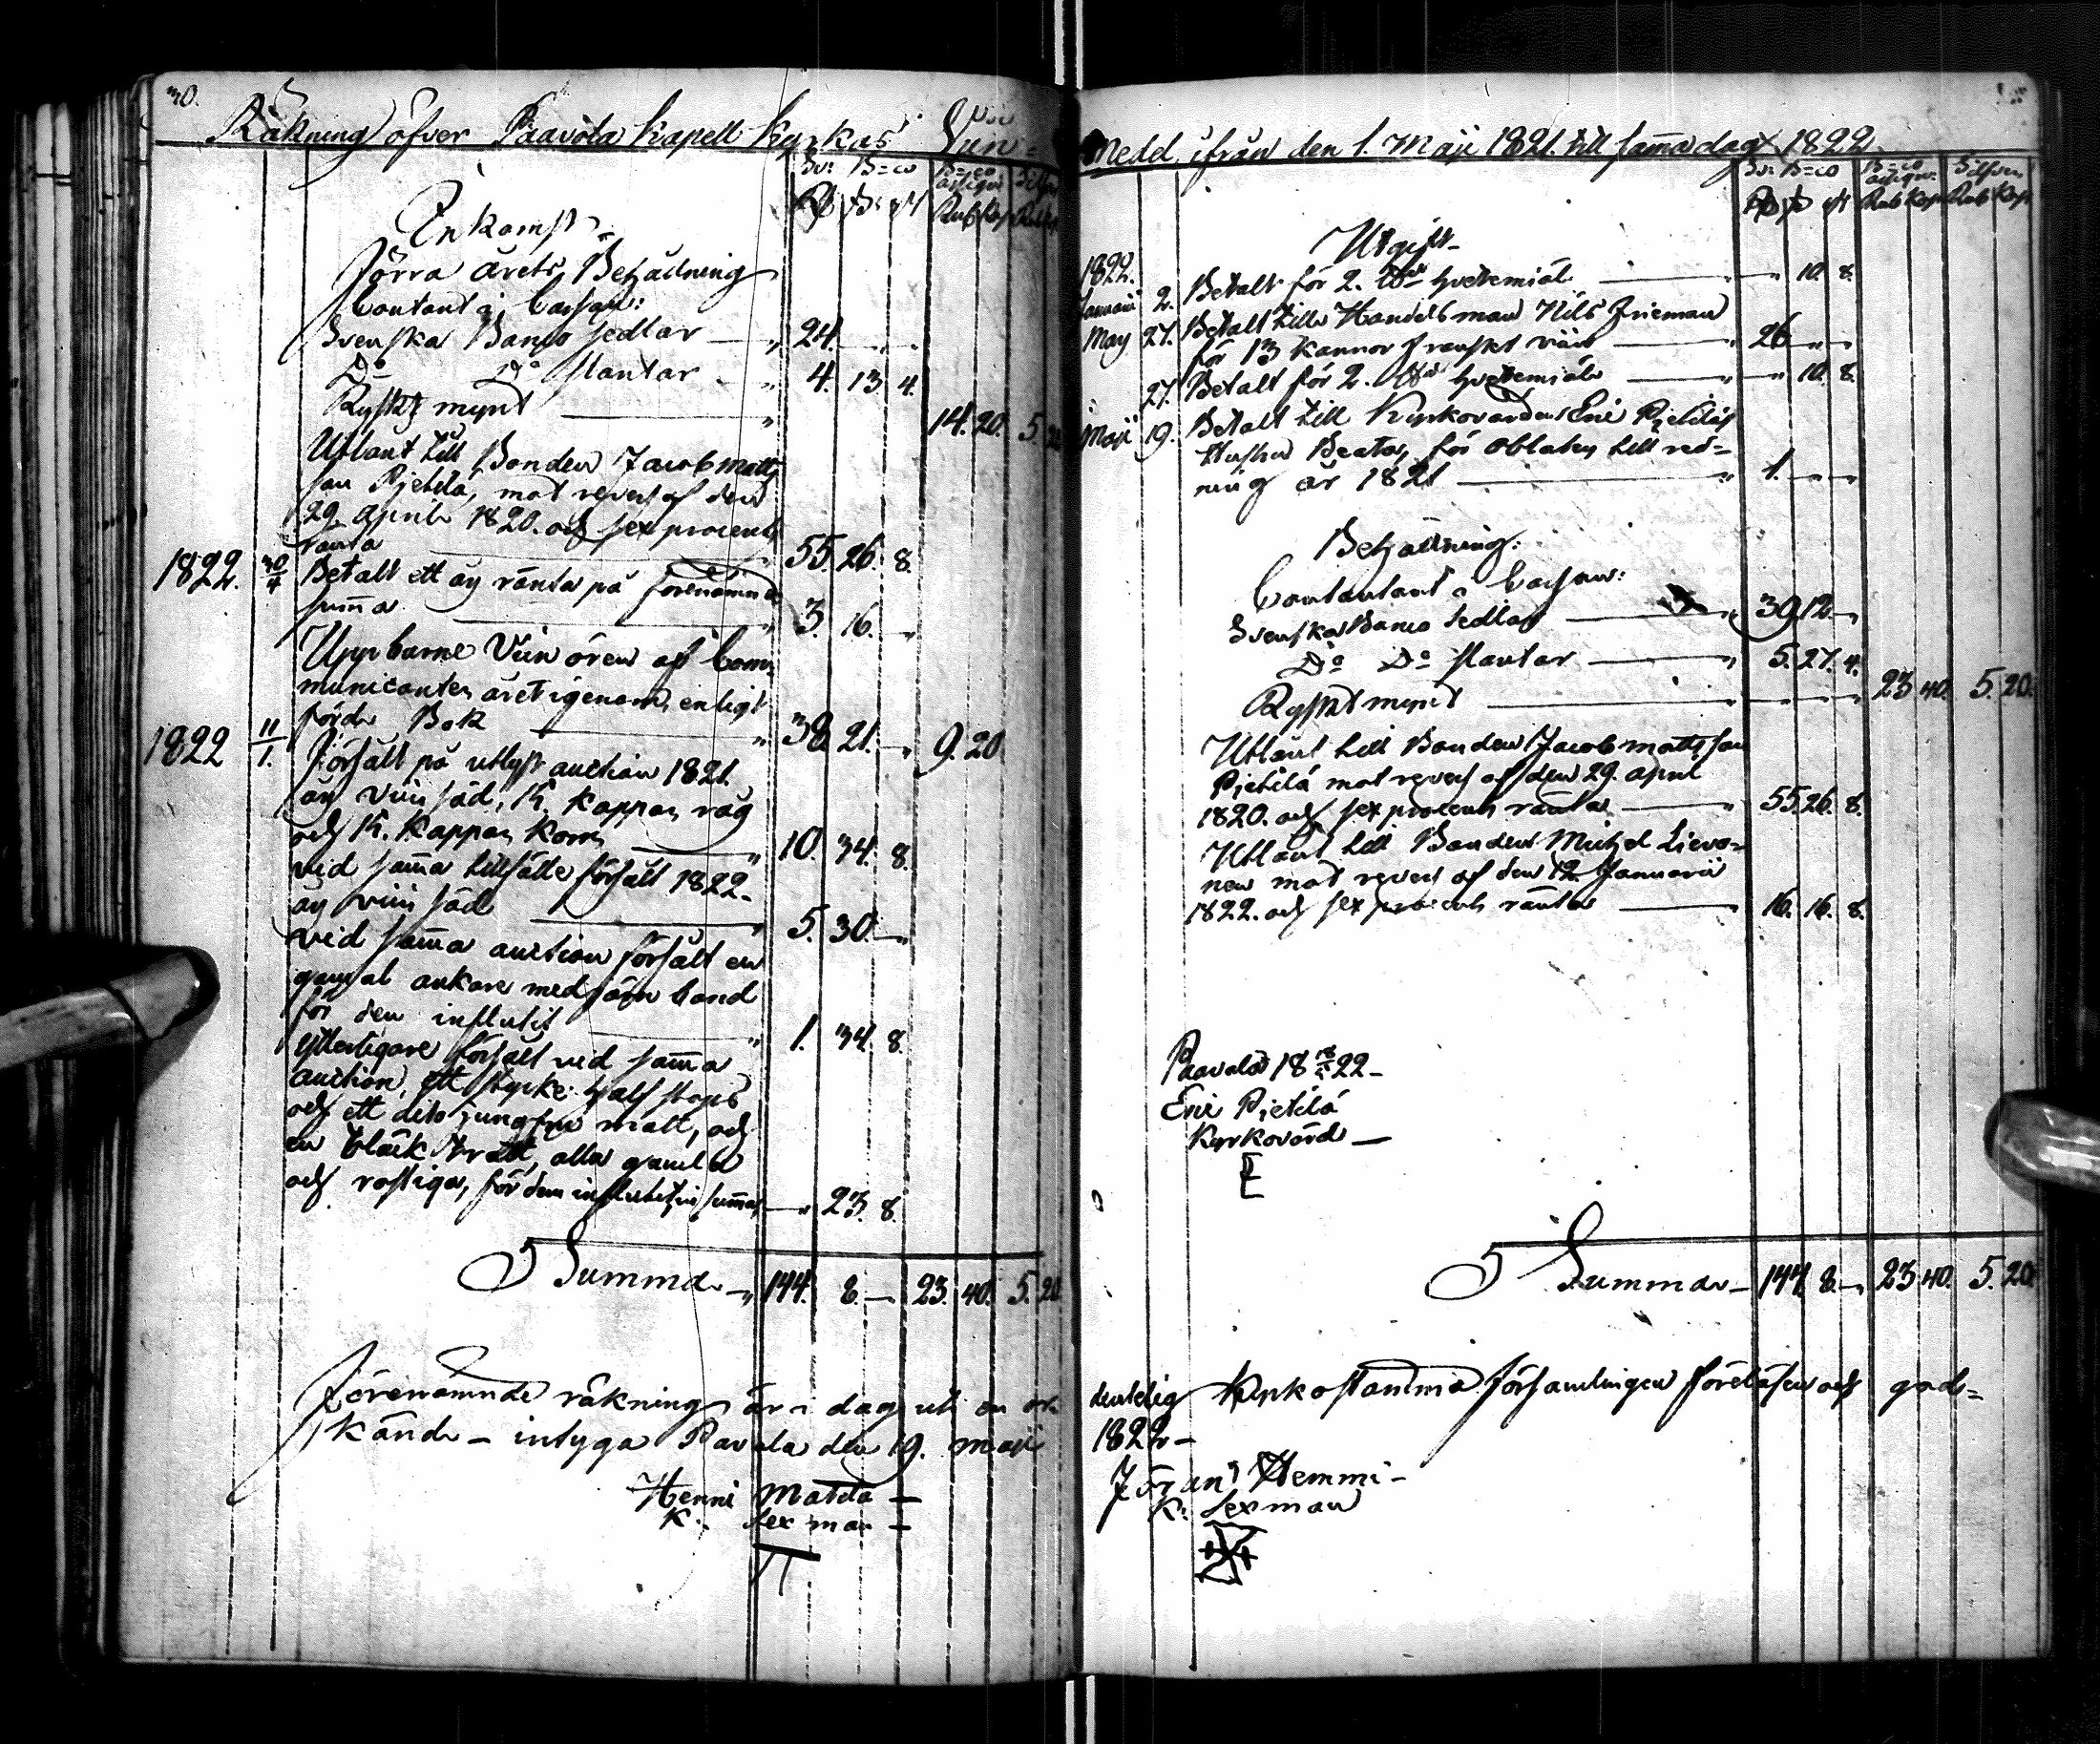 30.
Räkning öfver Paavola Kapell Kyrkas Vin=
Sv: B=co B=co assign: Silfver
Rd s: rst Rub Kop Rub
Inkomst
förra årets Behådning
Contant i Cassan:
Svenska Banco Sedlar — „ 24. „ „
Do Do slantar — „ 4. 13 4.
Ryskt mynt — „ 14. 20. 5. 20
Utlånt till Bonden Jacob Matts
son Pjetilä, mot revers af den
29 April 1820. och sex procents
ränta — „ 55. 26. 8.
1822. 30/4 Betalt ett års ränta på förenämnda
summa — „ 3. 16. „
Uppburne Viin ören af Com-
municanter året igenom, enligt
förde Bok — „ 38. 21. „ 9. 20
1822 11/1. försält på utlyst auction 1821.
års viin säd, 15. kappar råg
och 15. Kappar Korn — „ 10. 34. 8.
vid samma tillfälle försålt 1822-
års viin säd — „ 5. 30. „
vid samma auction försålt en
gammal ankare med järn band
för den influtit — „ 1. 34. 8.
ytterligare försålt vid samma
auction, ett stycke half stops
och ett dito jungfru mått, och
en bläck tratt, alla gamla
och rostiga, för dem influtit en summa — „ 23. 8.
Summa — „ 144. 8. — 23. 40. 5. 20
Förenämnde räkning är i dag uti en or-
känd — intyga Pavola den 19. Maji
Henni Matila —
K. Sexman —
Medel ifrån den 1. Maji 1821. till samma dag 1822.
Sv: B=co B=co assign: Silfver
Rd s rst Rub Kop Rub Kop
Utgift
1822.
Januari 2. Betalt för 2. hvetemjöl — „ 10. 8.
May 27. Betalt till Handelsman Nils Frieman
för 13 Kannor franskt viin — „ 26 „ „
27. Betalt för 2. hvetemjöl — „ „ 10. 8.
Maji 19. Betalt till Kyrkovärden Eric Pjetiläs
Hustru Beata, för Oblater till red-
ning år 1821 — „ 1. „ „
Behållning:
Contantant i Cassan:
Svenska Banco Sedlar — „ 39 12 „
Do Do slantar — „ 5. 27. 4.
Ryskt mynt — „ „ „ 23 40. 5. 20.
Utlånt till Bonden Jacob Mattsson
Pjetilä mot revers af den 29. April
1820. och sex procents ränta — „ 55. 26. 8.
Utlånt till Bonden Michel Lievo-
nen mot revers af den 12. Januarii
1822. och sex procents ränta — 16. 16. 8.
Paavola 18 22 –
Eric Pjetilä
Kyrkovärd —
E
Summa — 144 8. „ 23 40. 5. 20
dentelig Kyrkostämma församlingen föreläsen och god-
1822 –
Jöran Hemmi –
K: Sexman